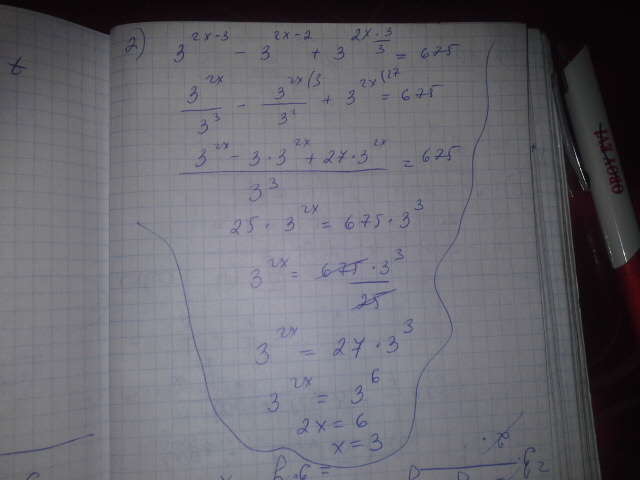 2)
3^{2x-3} - 3^{2x-2} + 3^{2x·\frac{3}{3}} = 675
\frac{3^{2x}}{3^3} - \frac{3^{2x(3}}{3^2} + 3^{2x(27} = 675
\frac{3^{2x} - 3·3^{2x} + 27·3^{2x}}{3^3} = 675
25·3^{2x} = 675·3^3
3^{2x} = \frac{675·3^3}{25}
3^{2x} = 27·3^3
3^{2x} = 3^6
2x = 6
x = 3